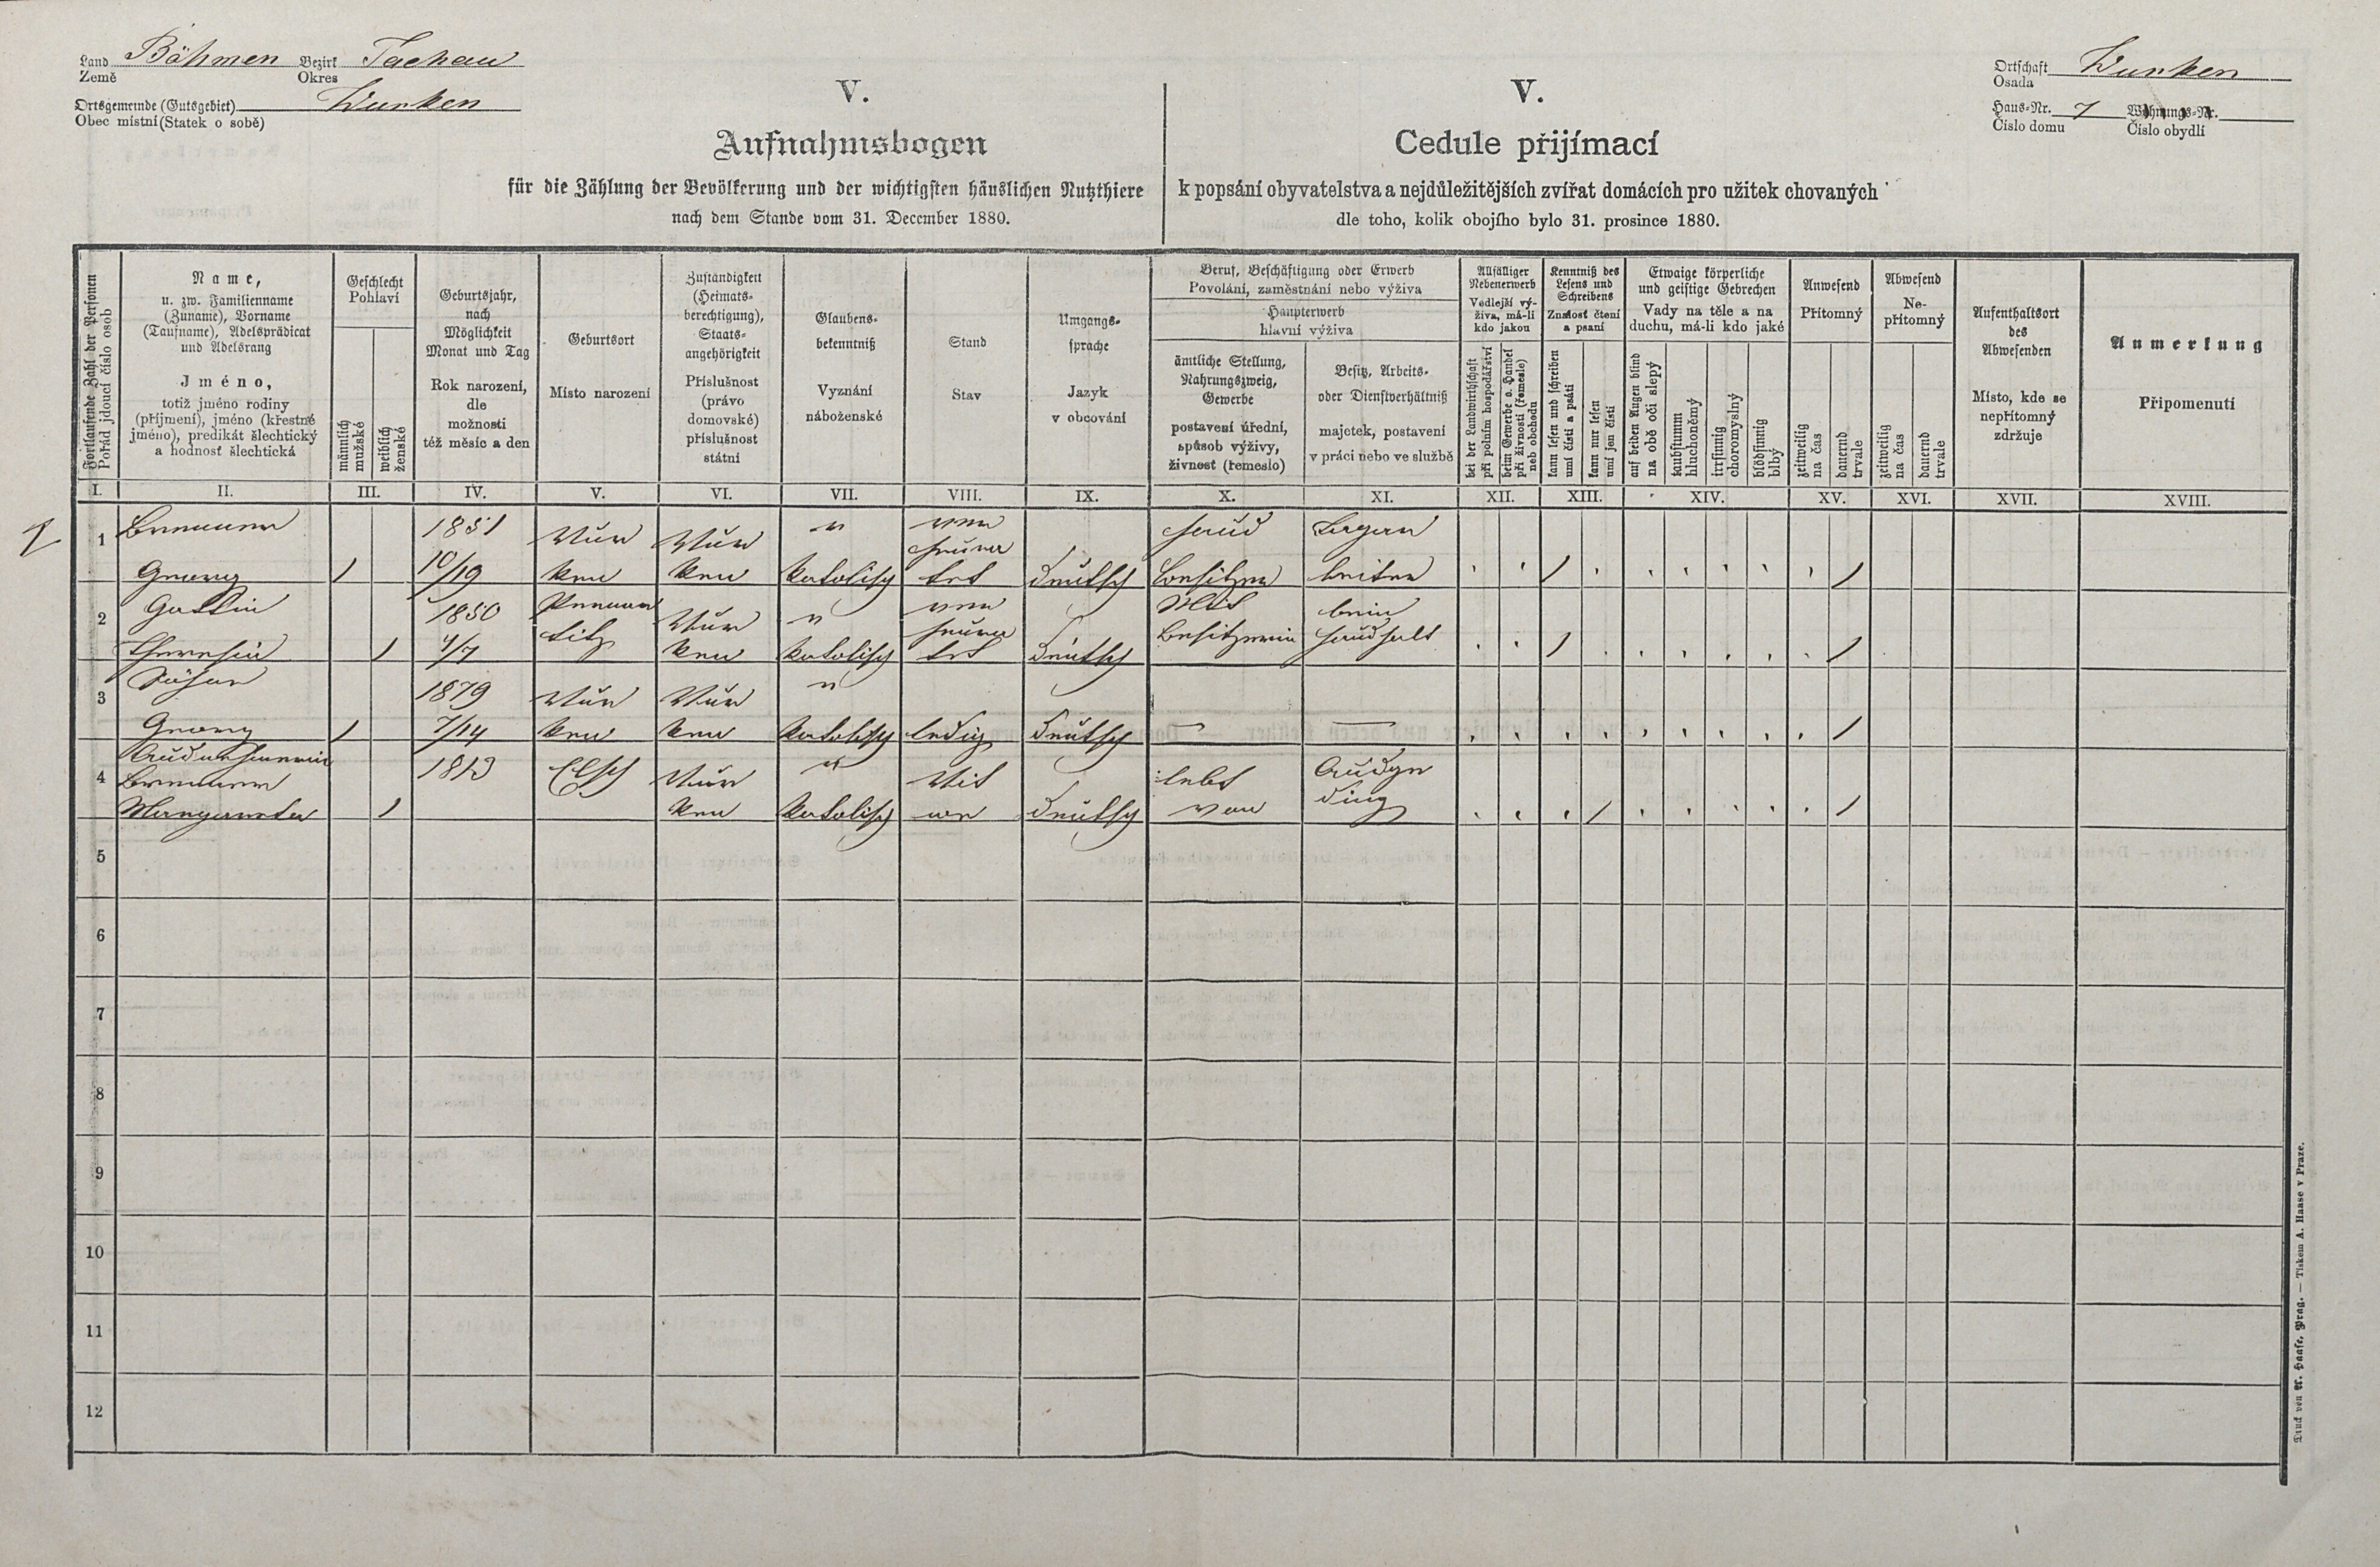 Land Böhmen Bezirk Tachau
Země Okres
Ortsgemeinde (Gutsgebiet) Wurken
Obec místní (Statek o sobě)
V.
Aufnahmsbogen
für die Zählung der Bevölkerung und der wichtigsten häuslichen Nutzthiere
nach dem Stande vom 31. December 1880.
V.
Cedule přijímací
k popsání obyvatelstva a nejdůležitějších zvířat domácích pro užitek chovaných
dle toho, kolik obojího bylo 31. prosince 1880.
Ortschaft Wurken
Osada
Haus-Nr. 7 Wohnungs-Nr.
Číslo domu Číslo obydlí
Fortlaufende Zahl der Personen
Pořád jdoucí číslo osob
Name,
u. zw. Familienname
(Zuname), Vorname
(Taufname), Adelsprädicat
und Adelsrang
Jméno,
totiž jméno rodiny
(příjmení), jméno (křestné
jméno), predikát šlechtický
a hodnosť šlechtická
Geschlecht
Pohlaví
männlich
mužské
weiblich
ženské
Geburtsjahr,
nach
Möglichkeit
Monat und Tag
Rok narození,
dle
možnosti
též měsíc a den
Geburtsort
Místo narození
Zuständigkeit
(Heimats-
berechtigung),
Staats-
angehörigkeit
Příslušnost
(právo
domovské)
příslušnost
státní
Glaubens-
bekenntniß
Vyznání
náboženské
Stand
Stav
Umgangs-
sprache
Jazyk
v obcování
Beruf, Beschäftigung oder Erwerb
Povolání, zaměstnání nebo výživa
Haupterwerb
hlavní výživa
ämtliche Stellung,
Nahrungszweig,
Gewerbe
postavení úřední,
spůsob výživy,
živnost (řemeslo)
Besitz, Arbeits-
oder Dienstverhältniß
majetek, postavení
v práci nebo ve službě
Allfälliger
Nebenerwerb
Vedlejší vý-
živa, má-li
kdo jakou
bei der Landwirthschaft
při polním hospodářství
beim Gewerbe o. Handel
při živnosti (řemesle)
neb obchodu
Kenntniß des
Lesens und
Schreibens
Známosť čtení
a psaní
kann lesen und schreiben
umí čísti a psáti
kann nur lesen
umí jen čísti
Etwaige körperliche
und geistige Gebrechen
Vady na těle a na
duchu, má-li kdo jaké
auf beiden Augen blind
na obě oči slepý
taubstumm
hluchoněmý
irrsinnig
choromyslný
blödsinnig
blbý
Anwesend
Přítomný
zeitweilig
na čas
dauernd
trvale
Abwesend
Ne-
přítomný
zeitweilig
na čas
dauernd
trvale
Aufenthaltsort
des
Abwesenden
Místo, kde se
nepřítomný
zdržuje
Anmerkung
Připomenutí
I. II. III. IV. V. VI. VII. VIII. IX. X. XI. XII. XIII. XIV. XV. XVI. XVII. XVIII.
1 1851 Wur Wur r ver Haus
heura
Georg 10/19 ken ken katolisch tet deutsch besitzer
2 Gattin 1850 Wur r ver Mit beim
titz heura besitzerin Haushalt
Theresia 4/7 ken katolisch tet deutsch
3 1879 Wur Wur r
Georg 7/14 ken ken katolisch ledig deutsch — —
4 1813 Elsch Wur r Wit lebt Ausge
Margareta ken katolisch we deutsch von ding
5
6
7
8
9
10
11
12
Druck von A. Haase, Prag. — Tiskem A. Haase v Praze.